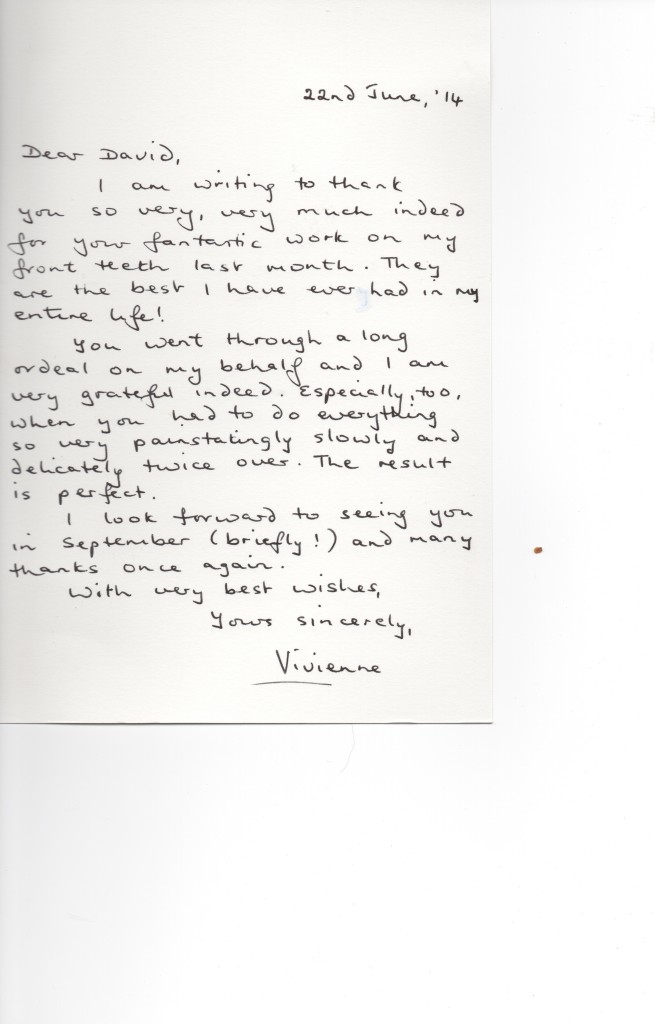 22nd June, '14
Dear David,
I am writing to thank
you so very, very much indeed
for your fantastic work on my
front teeth last month. They
are the best I have ever had in my
entire life!
You went through a long
ordeal on my behalf and I am
very grateful indeed. Especially, too,
when you had to do everything
so very painstakingly slowly and
delicately twice over. The result
is perfect.
I look forward to seeing you
in September (briefly!) and many
thanks once again.
With very best wishes,
Yours sincerely,
Vivienne